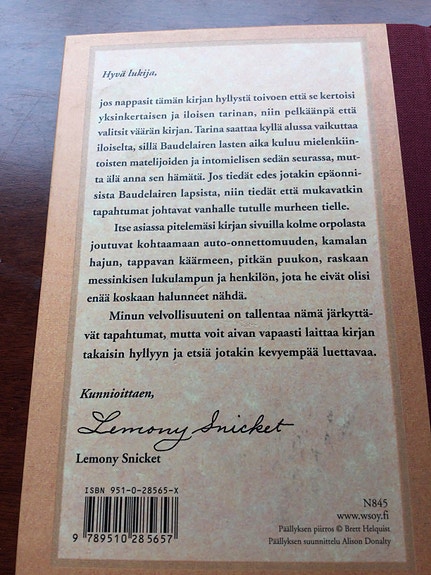 Hyvä lukija,
jos nappasit tämän kirjan hyllystä toivoen että se kertoisi
yksinkertaisen ja iloisen tarinan, niin pelkäänpä että
valitsit väärän kirjan. Tarina saattaa kyllä alussa vaikuttaa
iloiselta, sillä Baudelairen lasten aika kuluu mielenkiin-
toisten matelijoiden ja intomielisen sedän seurassa, mut-
ta älä anna sen hämätä. Jos tiedät edes jotakin epäonni-
sista Baudelairen lapsista, niin tiedät että mukavatkin
tapahtumat johtavat vanhalle tutulle murheen tielle.
Itse asiassa pitelemäsi kirjan sivuilla kolme orpolasta
joutuvat kohtaamaan auto-onnettomuuden, kamalan
hajun, tappavan käärmeen, pitkän puukon, raskaan
messinkisen lukulampun ja henkilön, jota he eivät olisi
enää koskaan halunneet nähdä.
Minun velvollisuuteni on tallentaa nämä järkyttä-
vät tapahtumat, mutta voit aivan vapaasti laittaa kirjan
takaisin hyllyyn ja etsiä jotakin kevyempää luettavaa.
Kunnioittaen,
Lemony Snicket
Lemony Snicket
ISBN 951-0-28565-X
9 789510 285657
N845
www.wsoy.fi
Päällyksen piirros © Brett Helquist
Päällyksen suunnittelu Alison Donalty